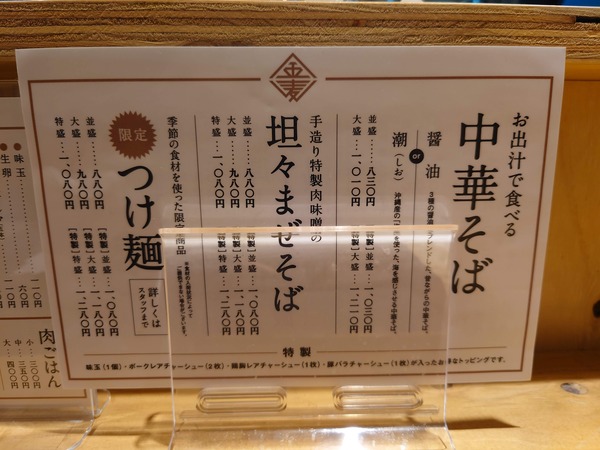 お出汁で食べる
中華そば
醤油
or
潮（しお）
並盛……八三〇円
大盛…一、〇一〇円
［特製］並盛…一、〇三〇円
［特製］大盛…一、二一〇円
手造り特製肉味噌の
坦々まぜそば
並盛……八八〇円
大盛……九八〇円
特盛…一、〇八〇円
［特製］並盛…一、〇八〇円
［特製］大盛…一、一八〇円
［特製］特盛…一、二八〇円
季節の食材を使った限定商品
限定
つけ麺
詳しくは
スタッフまで
並盛……八八〇円
大盛……九八〇円
特盛…一、〇八〇円
［特製］並盛…一、〇八〇円
［特製］大盛…一、一八〇円
［特製］特盛…一、二八〇円
特製
味玉（1個）・ポークレアチャーシュー（2枚）・鶏胸レアチャーシュー（1枚）・豚バラチャーシュー（1枚）が入ったお得なトッピングです。
味玉
生卵
肉ごはん
小…三〇〇円
中…三五〇円
大…四〇〇円